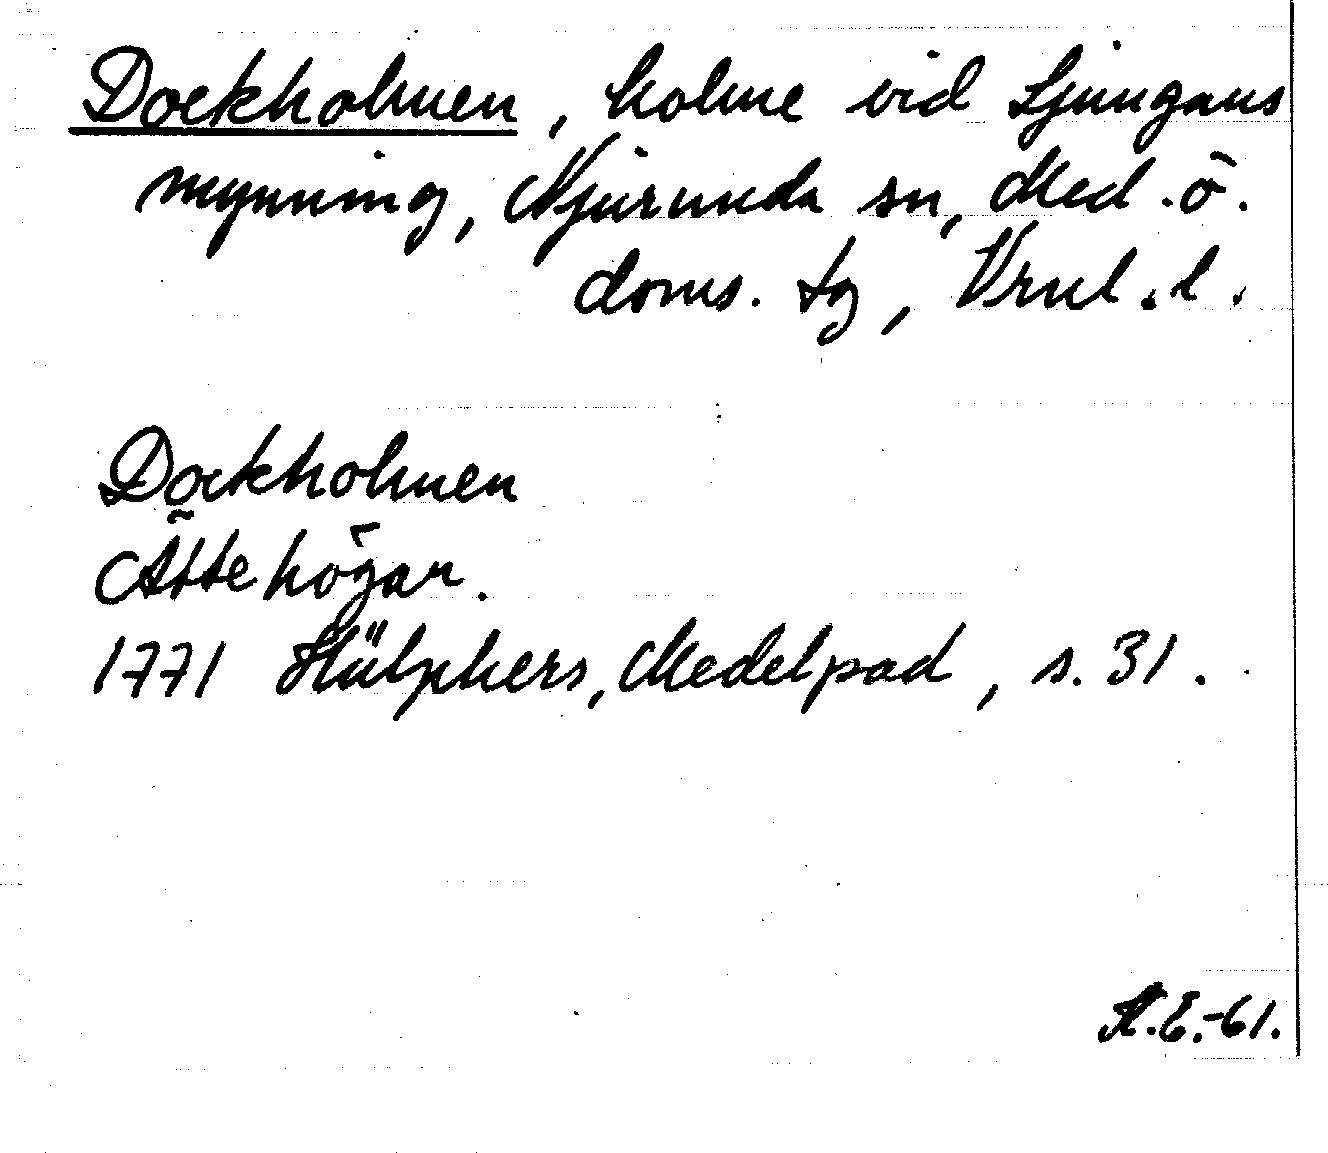 Dockholmen, holme vid Ljungans
mynning, Njurunda sn, Med. ö.
doms. tg, Vrnl. l.
Dockholmen
Ättehögar.
1771 Hülphers, Medelpad, s. 31.
H.E.-61.